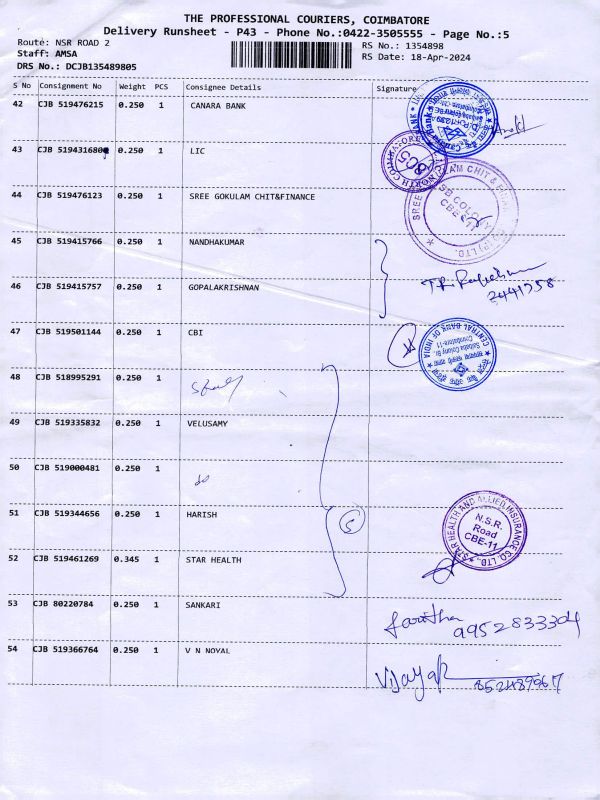 THE PROFESSIONAL COURIERS, COIMBATORE
Delivery Runsheet - P43 - Phone No.:0422-3505555 - Page No.:5
Route: NSR ROAD 2 RS No.: 1354898
Staff: AMSA RS Date: 18-Apr-2024
DRS No.: DCJB135489805
S No Consignment No Weight PCS Consignee Details Signature
42 CJB 519476215 0.250 1 CANARA BANK
43 CJB 519431680 0.250 1 LIC
44 CJB 519476123 0.250 1 SREE GOKULAM CHIT&FINANCE
SB COLONY
CBE-11
45 CJB 519415766 0.250 1 NANDHAKUMAR
46 CJB 519415757 0.250 1 GOPALAKRISHNAN
2441758
47 CJB 519501144 0.250 1 CBI
CENTRAL BANK OF INDIA
Saibaba Colony Br.
Coimbatore-11
48 CJB 518995291 0.250 1
49 CJB 519335832 0.250 1 VELUSAMY
50 CJB 519000481 0.250 1
do
51 CJB 519344656 0.250 1 HARISH
5
STAR HEALTH AND ALLIED INSURANCE CO. LTD.
N.S.R.
Road
CBE-11
52 CJB 519461269 0.345 1 STAR HEALTH
53 CJB 80220784 0.250 1 SANKARI
9952833304
54 CJB 519366764 0.250 1 V N NOYAL